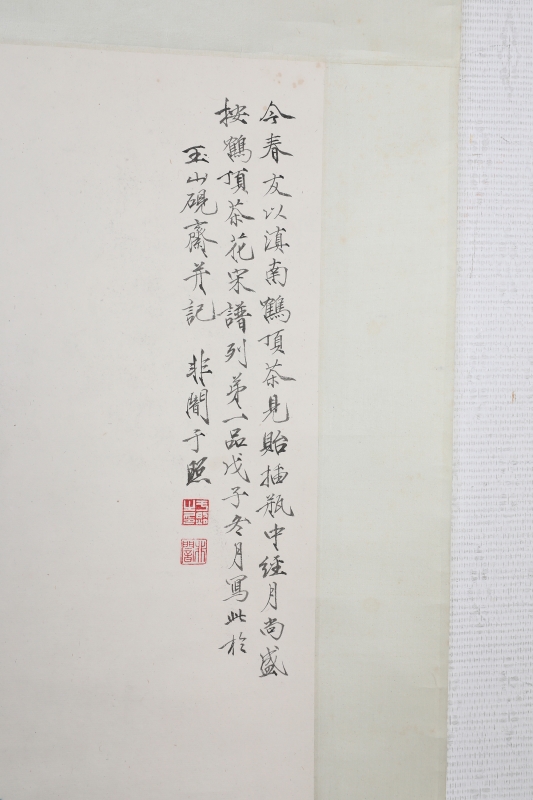 今春友以滇南鶴頂茶見貽插瓶中經月尚盛
按鶴頂茶花宋譜列第一品戊子冬月寫此於
玉山硯齋并記 非闇于照
于照
非闇